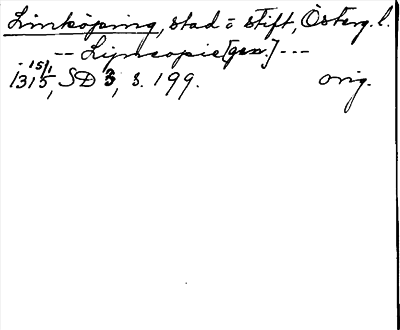 Linköping, stad = stift, Österg. l.
-- Lijncopie [gen.] ---
1315 15/1, SD 3, s. 199. orig.